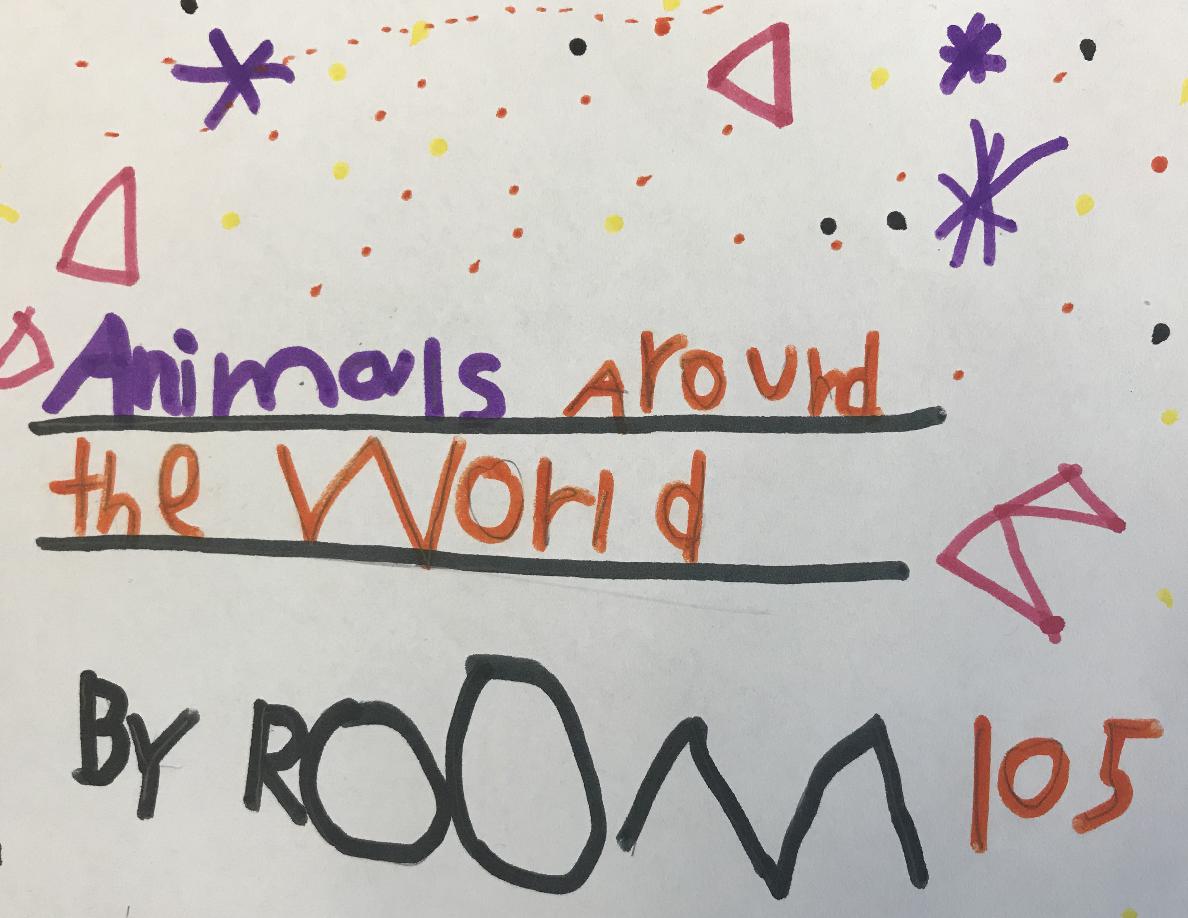 Animals Around
the World
By ROOM 105